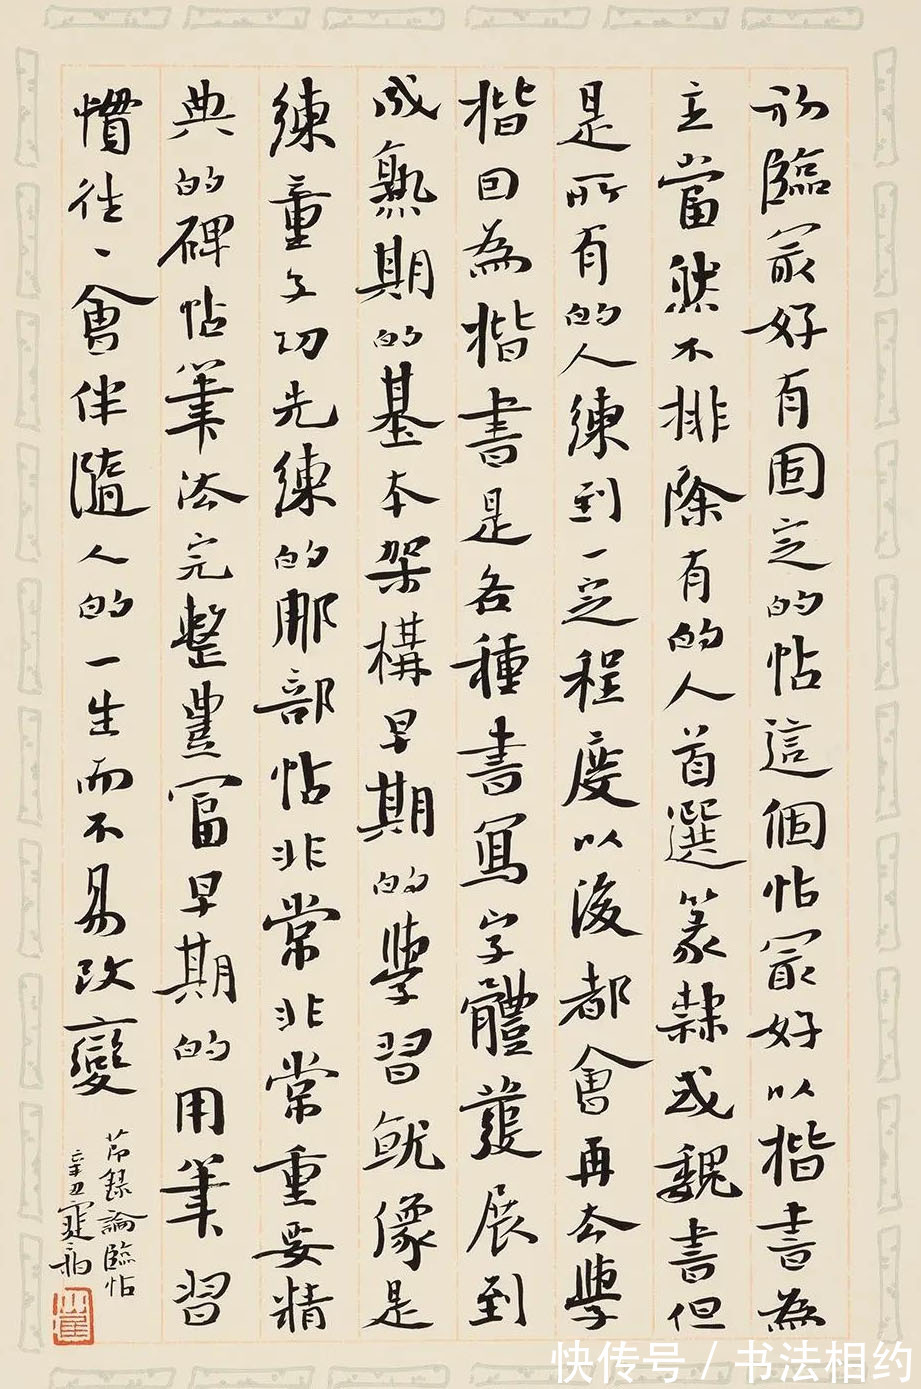 初臨最好有固定的帖這個帖最好以楷書為
主當然不排除有的人首選篆隸或魏書但
是所有的人練到一定程度以後都會再去學
楷因為楷書是各種書寫字體發展到
成熟期的基本架構早期的學習就像是
練童子功先練的那部帖非常非常重要精
典的碑帖筆法完整豐富早期的用筆習
慣往、會伴隨人的一生而不易改變
節錄論臨帖
辛丑寉翁
快传号 / 书法相约